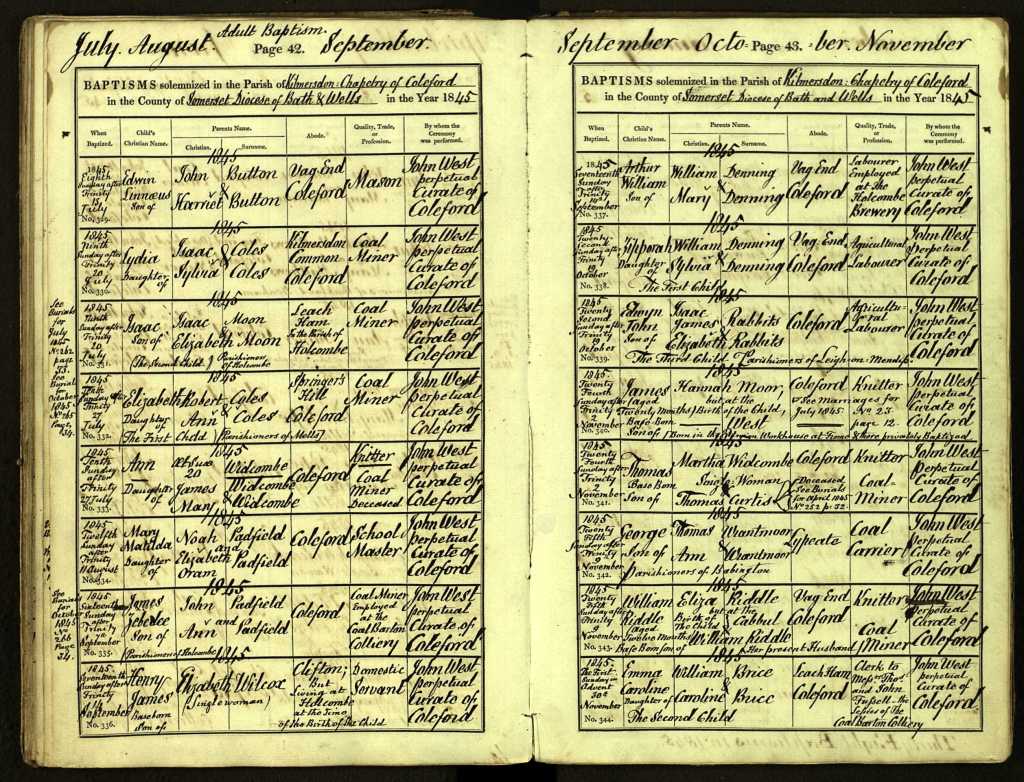 July. August. Adult Baptism. Page 42. September.
BAPTISMS solemnized in the Parish of Kilmersdon: Chapelry of Coleford
in the County of Somerset Diocese of Bath & Wells in the Year 1845
When Baptized. Child's Christian Name. Parents Name. Christian. Surname. Abode. Quality, Trade, or Profession. By whom the Ceremony was performed.
1845
1845 Eighth Sunday after Trinity 13 July No. 329.
Edwin Linnæus Son of
John & Harriet
Button Button
Vag End Coleford
Mason
John West perpetual Curate of Coleford
1845
1845 Ninth Sunday after Trinity 20 July No. 330.
Lydia Daughter of
Isaac & Sylvia
Coles Coles
Kilmersdon Common Coleford
Coal Miner
John West perpetual Curate of Coleford
1845
See Burials for July 1845 No 262 page 33.
1845 Ninth Sunday after Trinity 20 July No. 331.
Isaac Son of
Isaac & Elizabeth
Moon Moon
(The Second Child) (Parishioners of Holcombe
Leach Ham In the Parish of Holcombe
Coal Miner
John West perpetual Curate of Coleford
1845
See Burials for October 1845 No 265 Page, 34.
1845 Tenth Sunday after Trinity July No. 332.
Elizabeth Daughter of
Robert & Ann
Coles Coles
The First Child (Parishioners of Mells)
Springers Hill Coleford
Coal Miner
John West perpetual curate of Coleford
1845
1845 Tenth Sunday after Trinity 27 July No. 333.
Ann Daughter of
20 James & Mary
Widcombe Widcombe Widcombe
Coleford
Knitter Coal Miner Deceased
John West perpetual Curate of Coleford
1845
1845 Twelfth Sunday after Trinity August No. 334.
Mary Matilda Daughter of
Noah and Elizabeth Oram
Padfield Padfield
Coleford
School Master
John West perpetual Curate of Coleford
1845
See Burials for October 1845 No 266 Page 34.
1845 Sixteenth Sunday after Trinity 7th September No. 335.
James Zebedee Son of
John and Ann
Padfield Padfield
(Parishioners of Holcombe
Coleford
Coal Miner Employed at the Coal Barton Colliery
John West perpetual Curate of Coleford
1845
1845. Seventeenth Sunday after Trinity 14 September No. 336.
Henry James Baseborn Son of
Elizabeth Wilcox
(Single woman)
Clifton; But Living at Holcombe at the Time of the Birth of The Child
Domestic Servant
John West perpetual Curate of Coleford
September Octo- Page 43. -ber. November
BAPTISMS solemnized in the Parish of Kilmersdon: Chapelry of Coleford
in the County of Somerset Diocese of Bath and Wells in the Year 1845
When Baptized. Child's Christian Name. Parents Name. Christian. Surname. Abode. Quality, Trade, or Profession. By whom the Ceremony was performed.
1845
1845 Seventeenth Sunday after Trinity 14th September No. 337.
Arthur William Son of
William & Mary
Denning Denning
Vag End Coleford
Labourer Employed at the Holcombe Brewery
John West perpetual Curate of Coleford
1845
1845 Twenty Second Sunday after Trinity 19 October No. 338.
Zipporah Daughter of
William & Sylvia
Denning Denning
The First Child
Vag. End Coleford
Agricultural Labourer
John West Perpetual Curate of Coleford
1845
1845 Twenty Second Sunday after Trinity 19 October No. 339.
Edwyn John Son of
Isaac James & Elizabeth
Rabbits Rabbits
The Third Child. Parishioners of Leigh on Mendip
Coleford
Agricultu-ral Labourer
John West perpetual Curate of Coleford
1845
1845 Twenty Fourth Sunday after Trinity 2 November No. 340.
James (aged Twenty Months) Base Born Son of
Hannah Moor, but at the Birth of the Child, West
(Born in the Workhouse at Frome & there privately Baptized
Coleford
See Marriages for July 1845 No 23. page 12.
Knitter
John West perpetual Curate of Coleford
1845
1845 Twenty Fourth Sunday after Trinity 2 November No. 341.
Thomas Base Born Son of
Martha Widcombe Single Woman & Thomas Curtis
(Deceased See Burials for April 1845 No 252 p. 32.
Coleford
Knitter Coal Miner
John West Perpetual Curate of Coleford
1845
1845 Sunday after Trinity November No. 342.
George Son of
Thomas & Ann
Wrantmoor Wrantmoor
Parishioners of Babington
Lypeate
Coal Carrier
John West Perpetual Curate of Coleford
1845
1845 Twenty Fifth Sunday after Trinity 9 November No. 343.
William Riddle aged Twelve Months Base Born son of
Eliza Riddle but at the Birth of the Child Gabbul & William Riddle
(Her present Husband)
Vag End Coleford
Knitter Coal Miner
John West Perpetual Curate of Coleford
1845
1845 The First Sunday in Advent 30th November No. 344.
Emma Caroline Daughter of
William & Caroline
Brice Brice
The Second Child
Leach Ham Coleford
Clerk to Messrs Thos. and John the Lessees of The Coal Barton Colliery
John West perpetual Curate of Coleford